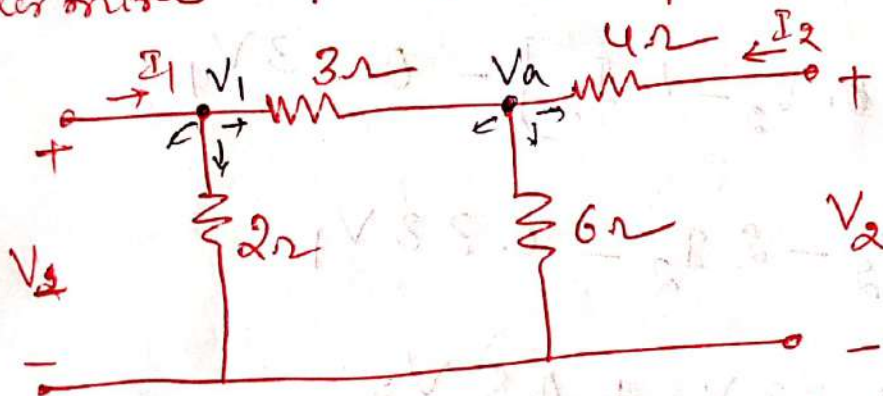 I1 V1 3Ω Va 4Ω I2
+ +
2Ω 6Ω
V1 V2
- -